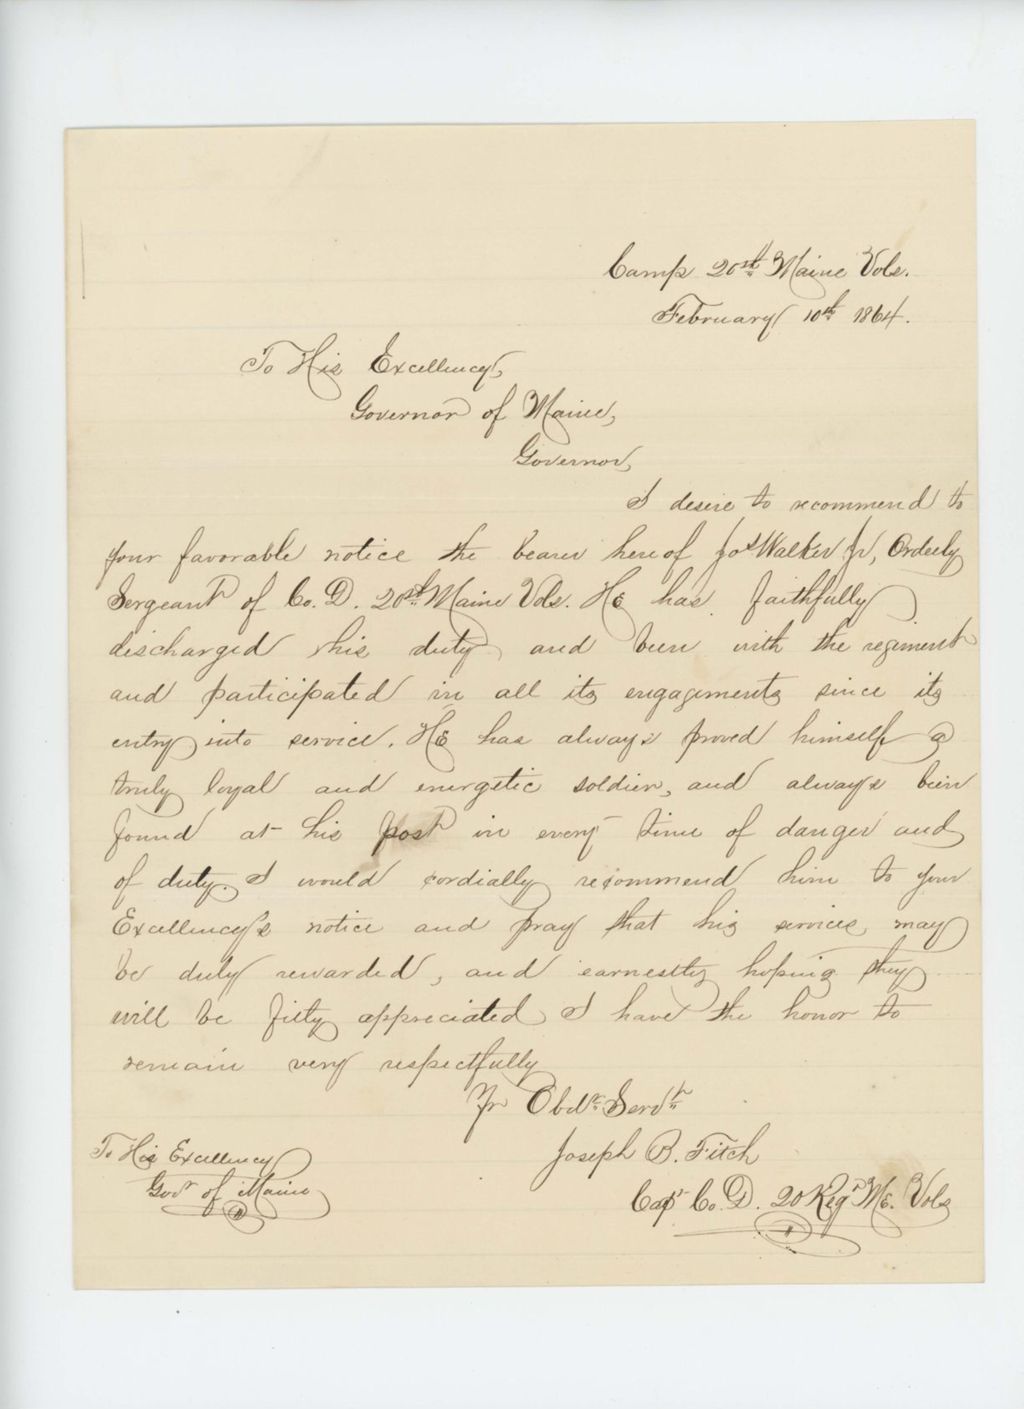 Camp 20st Maine Vols.
February 10th 1864.
To His Excellency,
Governor of Maine,
Governor,
I desire to recommend to
your favorable notice the bearer hereof Jos Walker Jr, Orderly
Sergeant of Co. D. 20st Maine Vols. He has faithfully
discharged his duty and been with the regiment
and participated in all its engagements since its
entry into service. He has always proved himself a
truly loyal and energetic soldier, and always been
found at his post in every time of danger and
of duty. I would cordially recommend him to your
Excellency's notice and pray that his services may
be duly rewarded, and earnestly hoping they
will be fitly appreciated I have the honor to
remain very respectfully
Yr Obdt Servt
Joseph B. Fitch
Capt Co. D. 20 Regt Me. Vols
To His Excellency
Govr of Maine